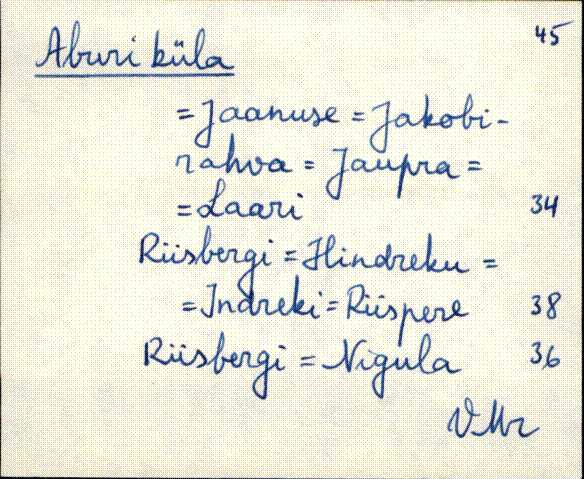 45
Aburi küla
= Jaanuse = Jakobi-
rahva = Jaupra =
= Laari 34
Riisbergi = Hindreku =
= Indreki = Riispere 38
Riisbergi = Nigula 36
VMr